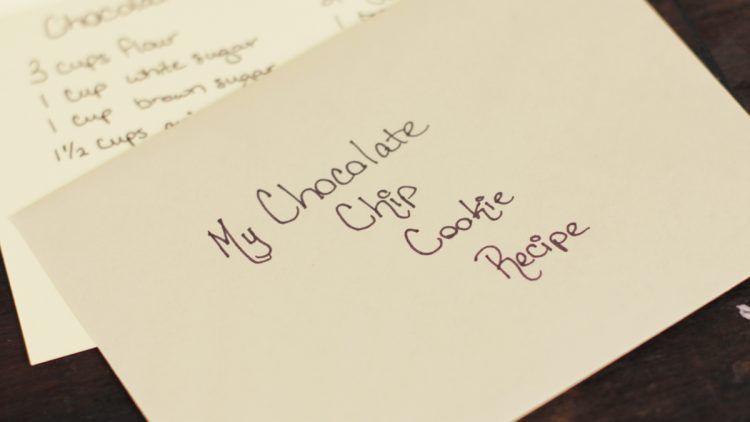 Chocola
3 cups flour
1 cup white sugar
1 cup brown sugar
1 1/2 cups
My Chocolate
Chip
Cookie
Recipe